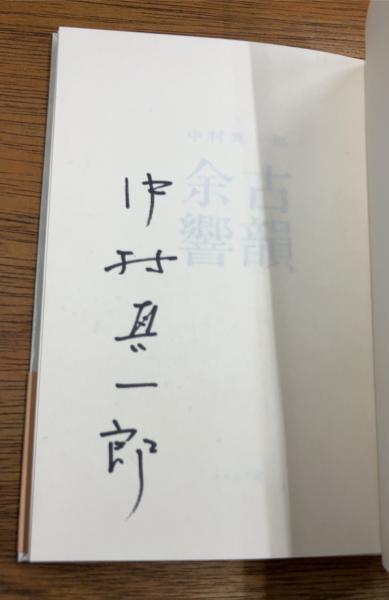 中村真一郎
中村真一郎
古韻
余響